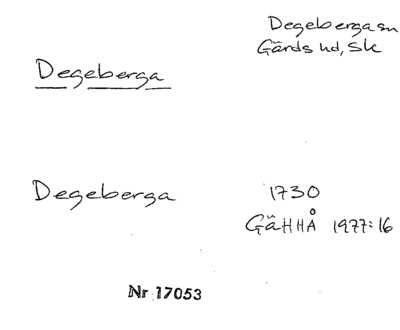 Degeberga sn
Gärds hd, Sk
Degeberga
Degeberga 1730
GäHHÅ 1977:16
Nr 17053